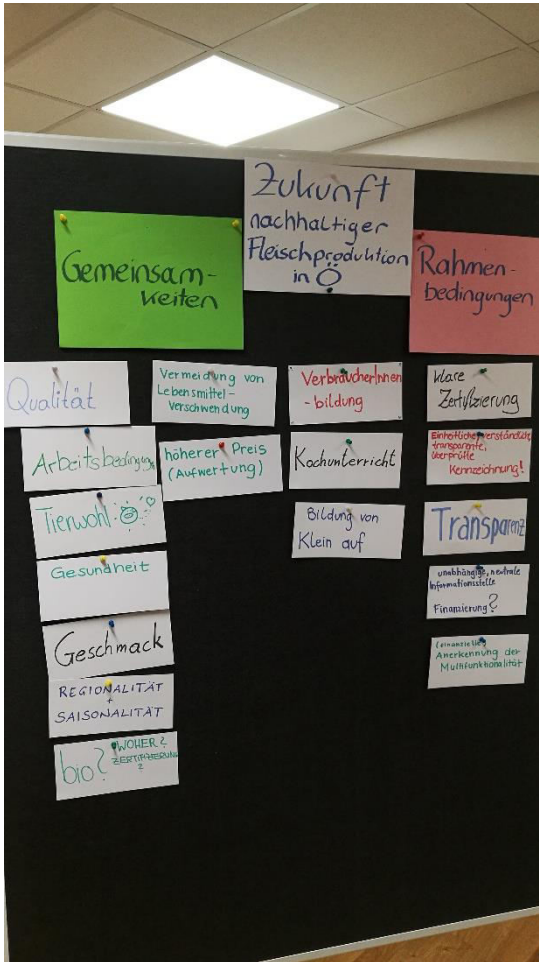 Zukunft
nachhaltiger
Fleischproduktion
in Ö
Gemeinsam-
keiten
Rahmen-
bedingungen
Qualität
Arbeitsbedingung
Tierwohl
Gesundheit
Geschmack
REGIONALITÄT
+
SAISONALITÄT
bio? WOHER?
ZERTIFIZIERUNG
?
Vermeidung von
Lebensmittel-
verschwendung
höherer Preis
(Aufwertung)
VerbraucherInnen
-bildung
Kochunterricht
Bildung von
Klein auf
klare
Zertifizierung
Einheitliche, verständliche
transparente,
überprüfte
Kennzeichnung!
Transparenz
unabhängige, neutrale
Informationsstelle
Finanzierung?
Anerkennung der
Multifunktionalität